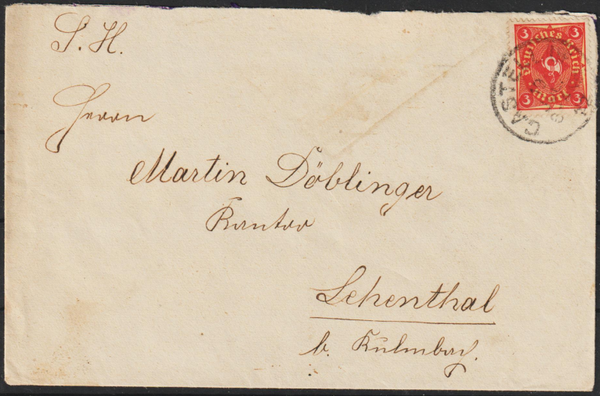 S. H.
Herrn
Martin Döblinger
Kantor
Lehenthal
b. Kulmbach.
3 3
Deutsches Reich
Mark
3 3
CASTEL